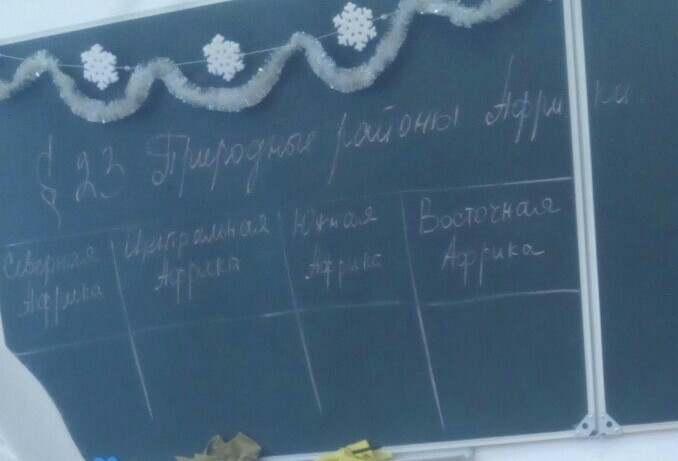 § 23 Природные районы Африки
Северная
Африка
Центральная
Африка
Южная
Африка
Восточная
Африка